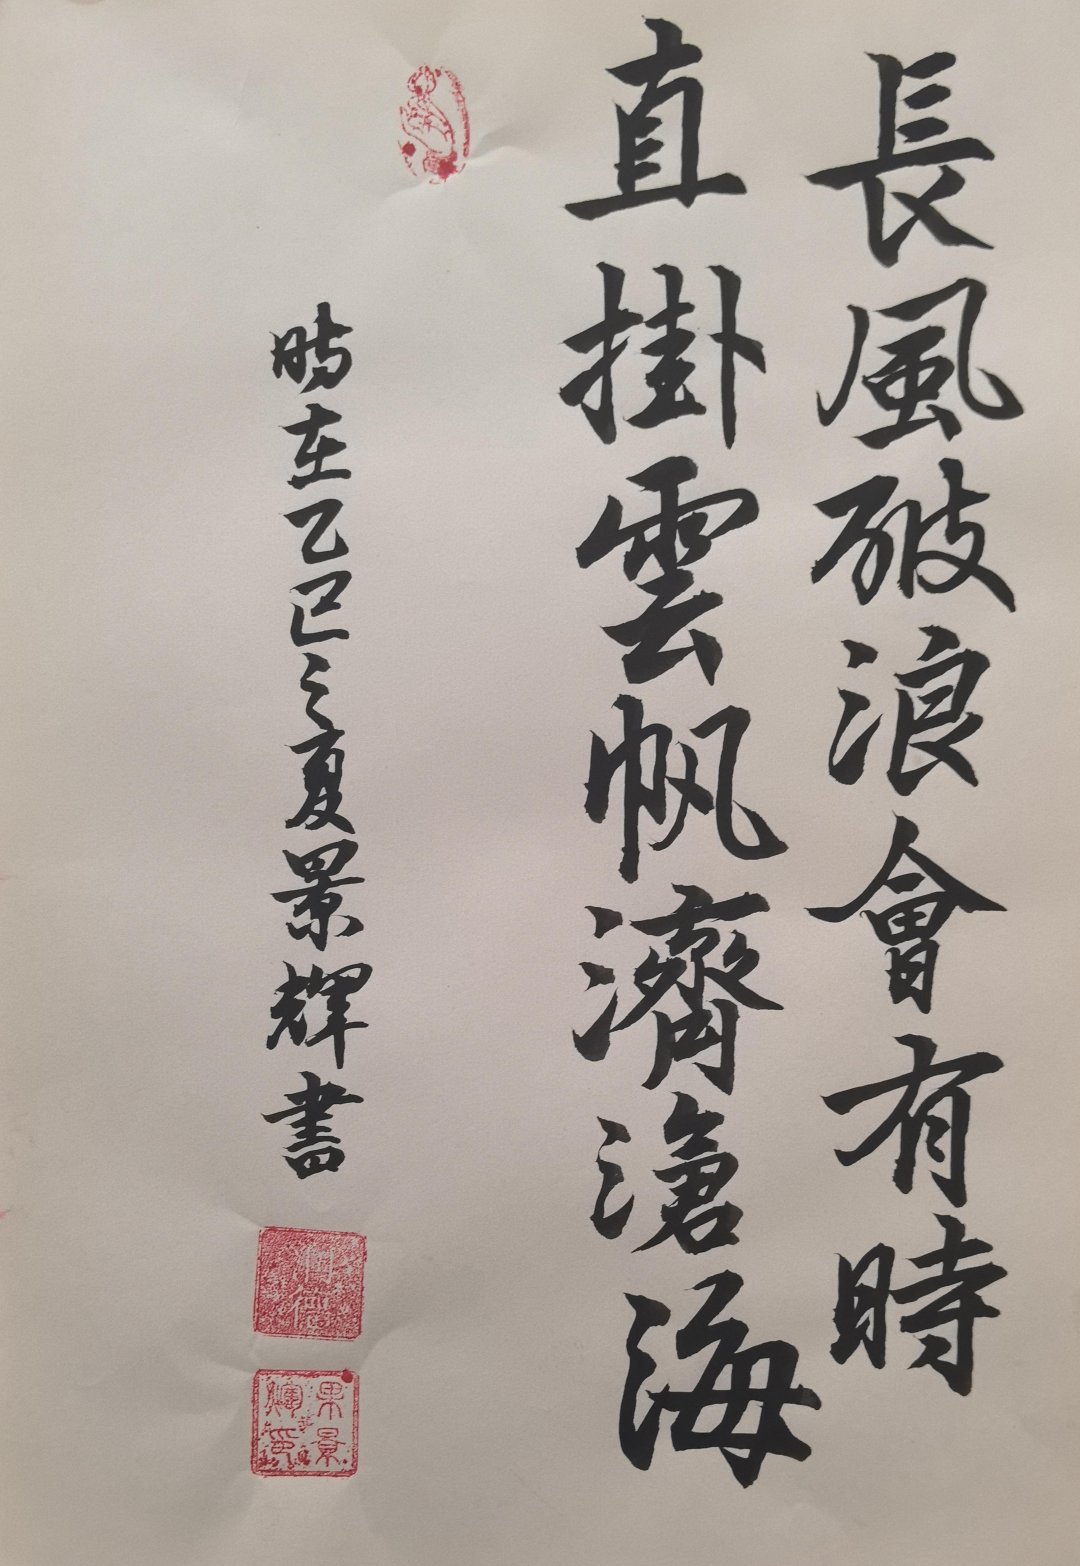 長風破浪會有時
直掛雲帆濟滄海
時在乙巳之夏景輝書
果景輝印